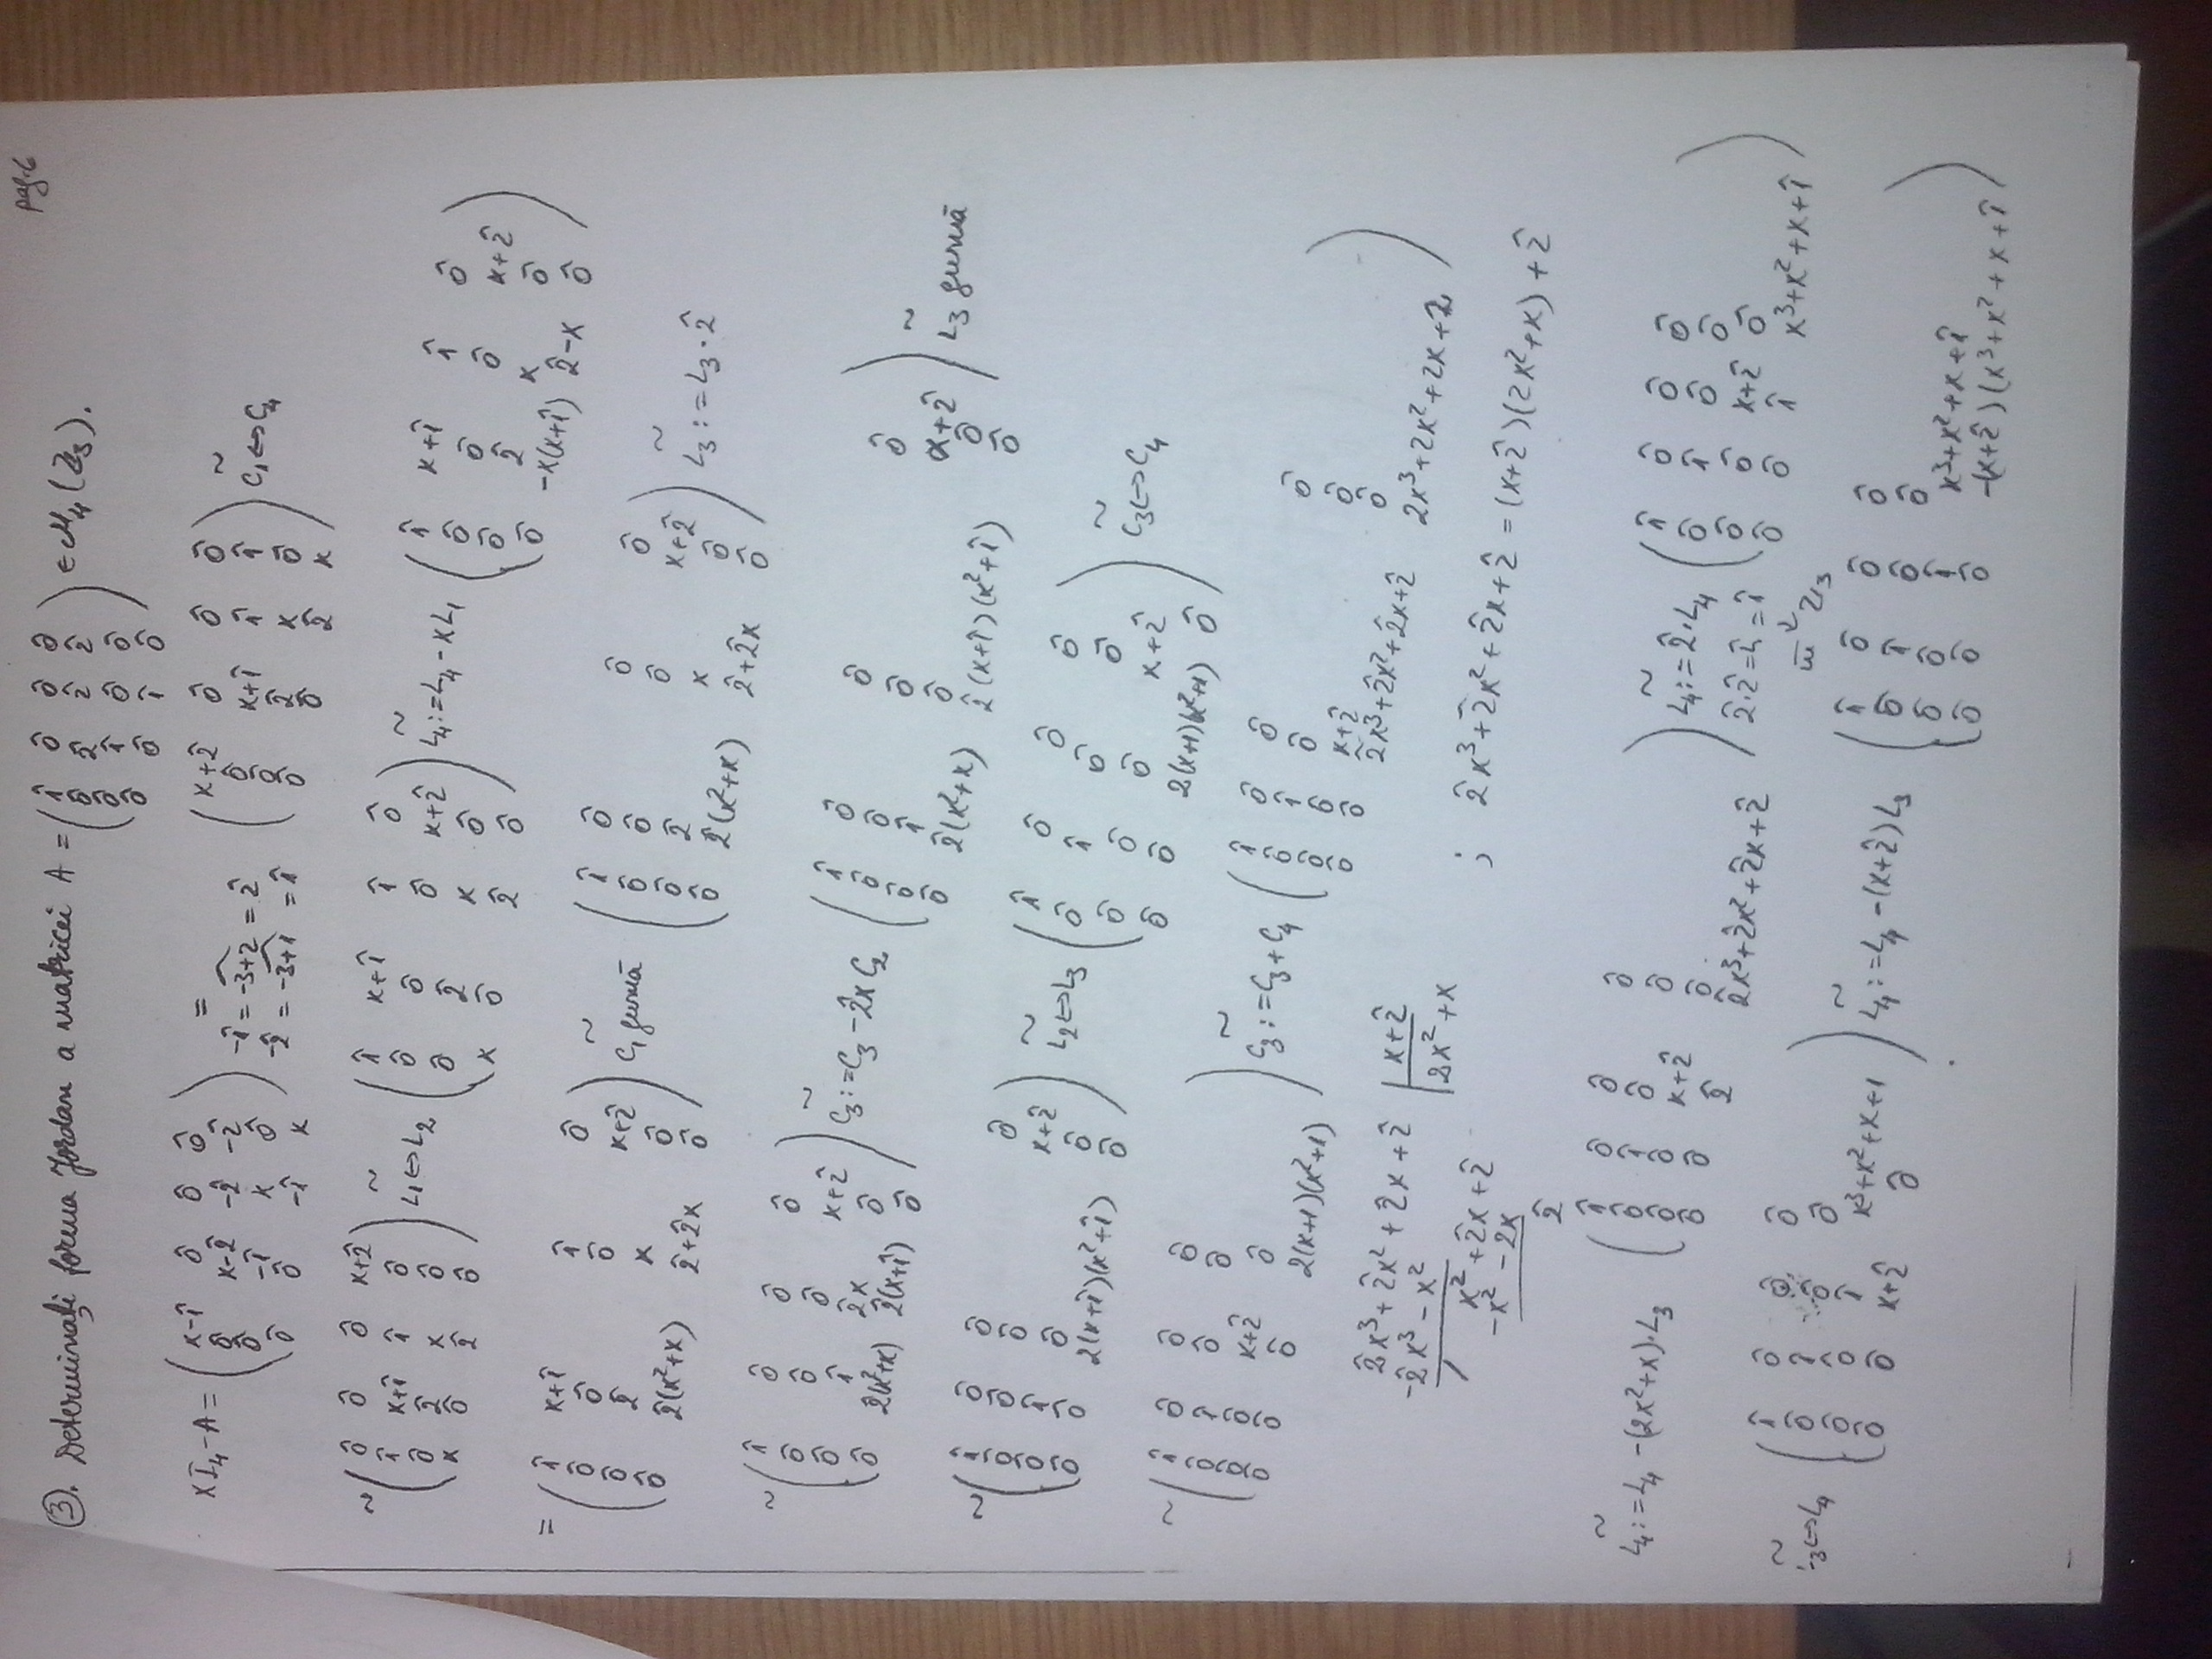 pag. 6
③. Determinaţi forma Jordan a matricei A = ( 1̂ 0̂ 0̂ 0̂ ; 0̂ 2̂ 2̂ 2̂ ; 0̂ 1̂ 0̂ 0̂ ; 0̂ 0̂ 1̂ 0̂ ) ∈ M₄(ℤ₃).
xI₄-A = ( x-1̂ 0̂ 0̂ 0̂ ; 0̂ x-2̂ -2̂ -2̂ ; 0̂ -1̂ x 0̂ ; 0̂ 0̂ -1̂ x ) = -1̂ = -3+2 = 2̂ -2̂ = -3+1 = 1̂ ( x+2̂ 0̂ 0̂ 0̂ ; 0̂ x+1̂ 1̂ 1̂ ; 0̂ 2̂ x 0̂ ; 0̂ 0̂ 2̂ x ) ~ C₁↔C₄
~ ( 0̂ 0̂ 0̂ x+2̂ ; 1̂ x+1̂ 1̂ 0̂ ; 0̂ 2̂ x 0̂ ; x 0̂ 2̂ 0̂ ) ~ L₁↔L₂ ( 1̂ x+1̂ 1̂ 0̂ ; 0̂ 0̂ 0̂ x+2̂ ; 0̂ 2̂ x 0̂ ; x 0̂ 2̂ 0̂ ) ~ L₄:=L₄-xL₁ ( 1̂ x+1̂ 1̂ 0̂ ; 0̂ 0̂ 0̂ x+2̂ ; 0̂ 2̂ x 0̂ ; 0̂ -x(x+1̂) 2̂-x 0̂ )
= ( 1̂ x+1̂ 1̂ 0̂ ; 0̂ 0̂ 0̂ x+2̂ ; 0̂ 2̂ x 0̂ ; 0̂ 2̂(x²+x) 2̂+2̂x 0̂ ) ~ C₁ ( 1̂ 0̂ 0̂ 0̂ ; 0̂ 0̂ 0̂ x+2̂ ; 0̂ 2̂ x 0̂ ; 0̂ 2̂(x²+x) 2̂+2̂x 0̂ ) ~ L₃:=L₃·2̂
~ ( 1̂ 0̂ 0̂ 0̂ ; 0̂ 0̂ 0̂ x+2̂ ; 0̂ 1̂ 2̂x 0̂ ; 0̂ 2(x²+x) 2̂(x+1̂) 0̂ ) ~ C₃:=C₃-2̂xC₂ ( 1̂ 0̂ 0̂ 0̂ ; 0̂ 0̂ 0̂ x+2̂ ; 0̂ 1̂ 0̂ 0̂ ; 0̂ 2̂(x²+x) 2̂(x+1̂)(x²+1̂) 0̂ ) ~ L₃
~ ( 1̂ 0̂ 0̂ 0̂ ; 0̂ 0̂ 0̂ x+2̂ ; 0̂ 1̂ 0̂ 0̂ ; 0̂ 0̂ 2(x+1̂)(x²+1̂) 0̂ ) ~ L₂↔L₃ ( 1̂ 0̂ 0̂ 0̂ ; 0̂ 1̂ 0̂ 0̂ ; 0̂ 0̂ 0̂ x+2̂ ; 0̂ 0̂ 2(x+1)(x²+1) 0̂ ) ~ C₃↔C₄
~ ( 1̂ 0̂ 0̂ 0̂ ; 0̂ 1̂ 0̂ 0̂ ; 0̂ 0̂ x+2̂ 0̂ ; 0̂ 0̂ 0̂ 2(x+1)(x²+1) ) ~ C₃:=C₃+C₄ ( 1̂ 0̂ 0̂ 0̂ ; 0̂ 1̂ 0̂ 0̂ ; 0̂ 0̂ x+2̂ 0̂ ; 0̂ 0̂ 2̂x³+2̂x²+2̂x+2̂ 2x³+2x²+2x+2 )
2̂x³+2̂x²+2x+2̂ | x+2̂
-2̂x³-x² 2x²+x ; 2̂x³+2x²+2̂x+2̂ = (x+2̂)(2x²+x)+2̂
x²+2̂x+2̂
-x²-2x
2̂
~ L₄:=L₄-(2x²+x)·L₃ ( 1̂ 0̂ 0̂ 0̂ ; 0̂ 1̂ 0̂ 0̂ ; 0̂ 0̂ x+2̂ 0̂ ; 0̂ 0̂ 2̂ 2̂x³+2̂x²+2̂x+2̂ ) ~ L₄:=2̂·L₄ 2̂·2̂=4̂=1̂ în ℤ₃ ( 1̂ 0̂ 0̂ 0̂ ; 0̂ 1̂ 0̂ 0̂ ; 0̂ 0̂ x+2̂ 0̂ ; 0̂ 0̂ 1̂ x³+x²+x+1̂ )
~ L₃↔L₄ ( 1̂ 0̂ 0̂ 0̂ ; 0̂ 1̂ 0̂ 0̂ ; 0̂ 0̂ 1̂ x³+x²+x+1 ; 0̂ 0̂ x+2̂ 0̂ ) ~ L₄:=L₄-(x+2̂)L₃ ( 1̂ 0̂ 0̂ 0̂ ; 0̂ 1̂ 0̂ 0̂ ; 0̂ 0̂ 1̂ x³+x²+x+1̂ ; 0̂ 0̂ 0̂ -(x+2̂)(x³+x²+x+1̂) )